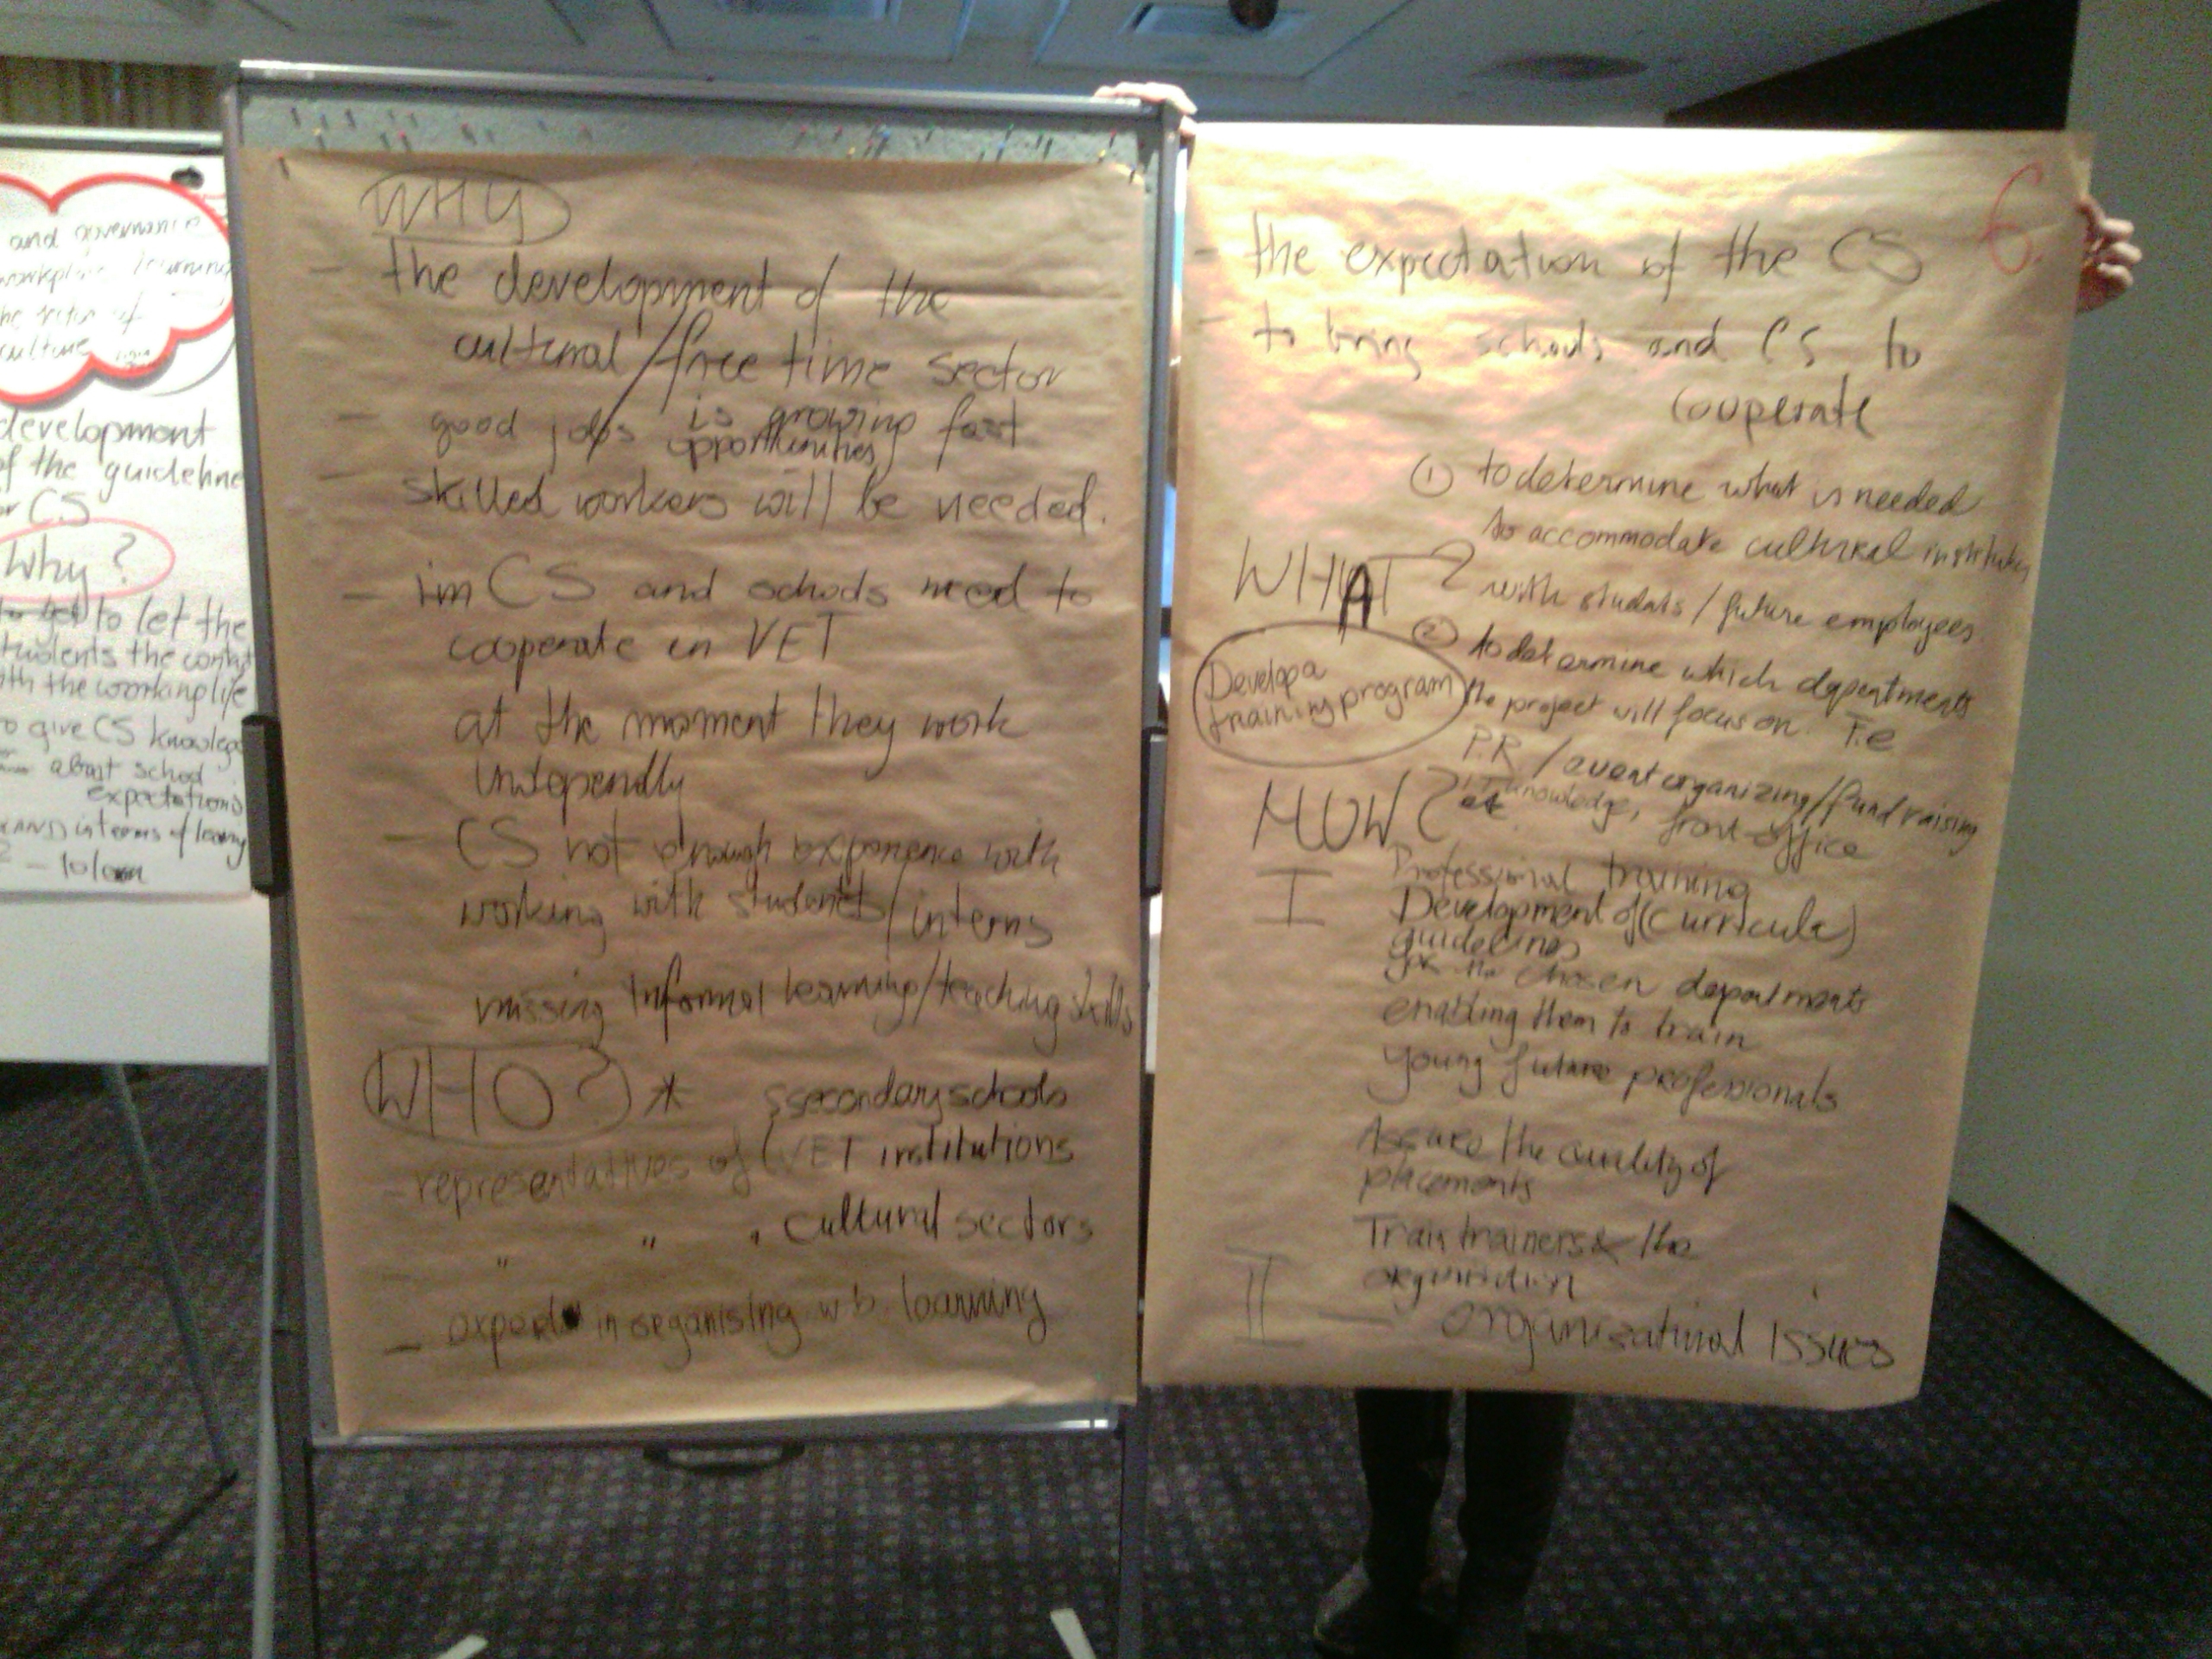 and governance
workplace learning
the sector of
culture
development
of the guideline
or CS
Why?
to let the
students the contact
with the working life
to give CS knowledge
about school
expectations
AND in terms of learning
WHY
- the development of the
cultural / free time sector
is growing fast
- good jobs opportunities
- skilled workers will be needed.
- im CS and schools need to
cooperate in VET
at the moment they work
indepently
- CS not enough experience with
working with students / interns
missing informal learning/teaching skills
WHO? * secondary schools
- representatives of VET institutions
- " " " cultural sectors
- experts in organising w b. learning
6.
- the expectation of the CS
- to bring schools and CS to
cooperate
① to determine what is needed
to accommodate cultural institutes
WHAT? with students / future employees
② to determine which departments
Develop a
training program
the project will focus on F.e
P.R / event organizing / fundraising
IT knowledge, front-office
HOW?
I Professional training
Development of (curricula)
guidelines
for the chosen departments
enabling them to train
young future professionals
Assure the quality of
placements
Train trainers & the
organisation
II - organizational issues